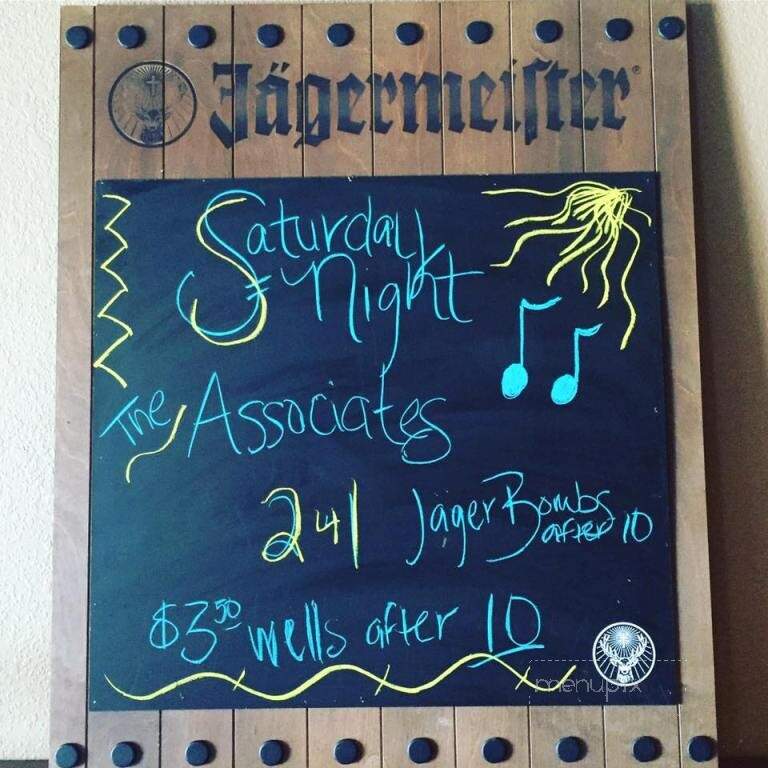 Jägermeister®
Saturday
Night
The Associates
241 Jager Bombs
after 10
$3.50 wells after 10
menupix